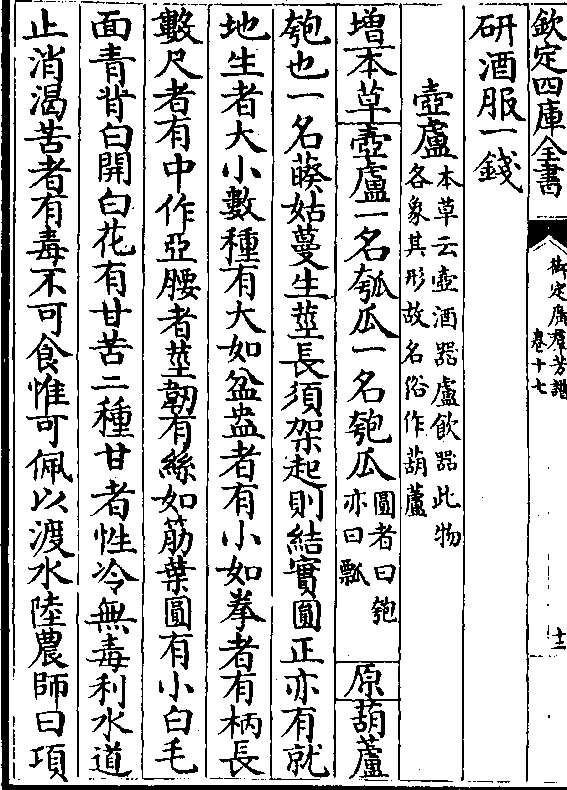 欽定四庫全書
御定廣羣芳譜
卷十七
十二
研酒服一錢
壺盧
本草云壺酒器盧飲器此物
各象其形故名俗作葫蘆
增本草壺盧一名瓠瓜一名匏瓜
圓者曰匏
亦曰瓢
原葫蘆
匏也一名藈姑蔓生莖長須架起則結實圓正亦有就
地生者大小數種有大如盆盎者有小如拳者有柄長
數尺者有中作亞腰者莖韌有絲如筋葉圓有小白毛
面青背白開白花有甘苦二種甘者性冷無毒利水道
止消渴苦者有毒不可食惟可佩以渡水陸農師曰項